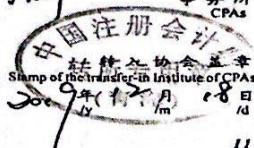 CPAs
中国注册会计
转入协会盖章
Stamp of the transfer-in Institute of CPAs
2009年12月18日
/y /m /d